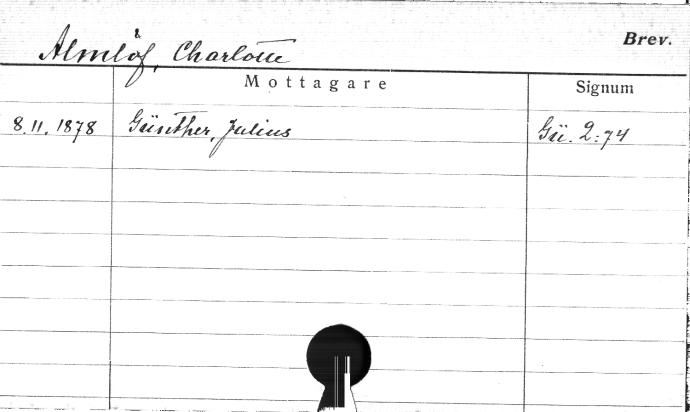 Almlöf, Charlotte
Brev.
Mottagare
Signum
8.11.1878 Günther, Julius Gü. 2:74